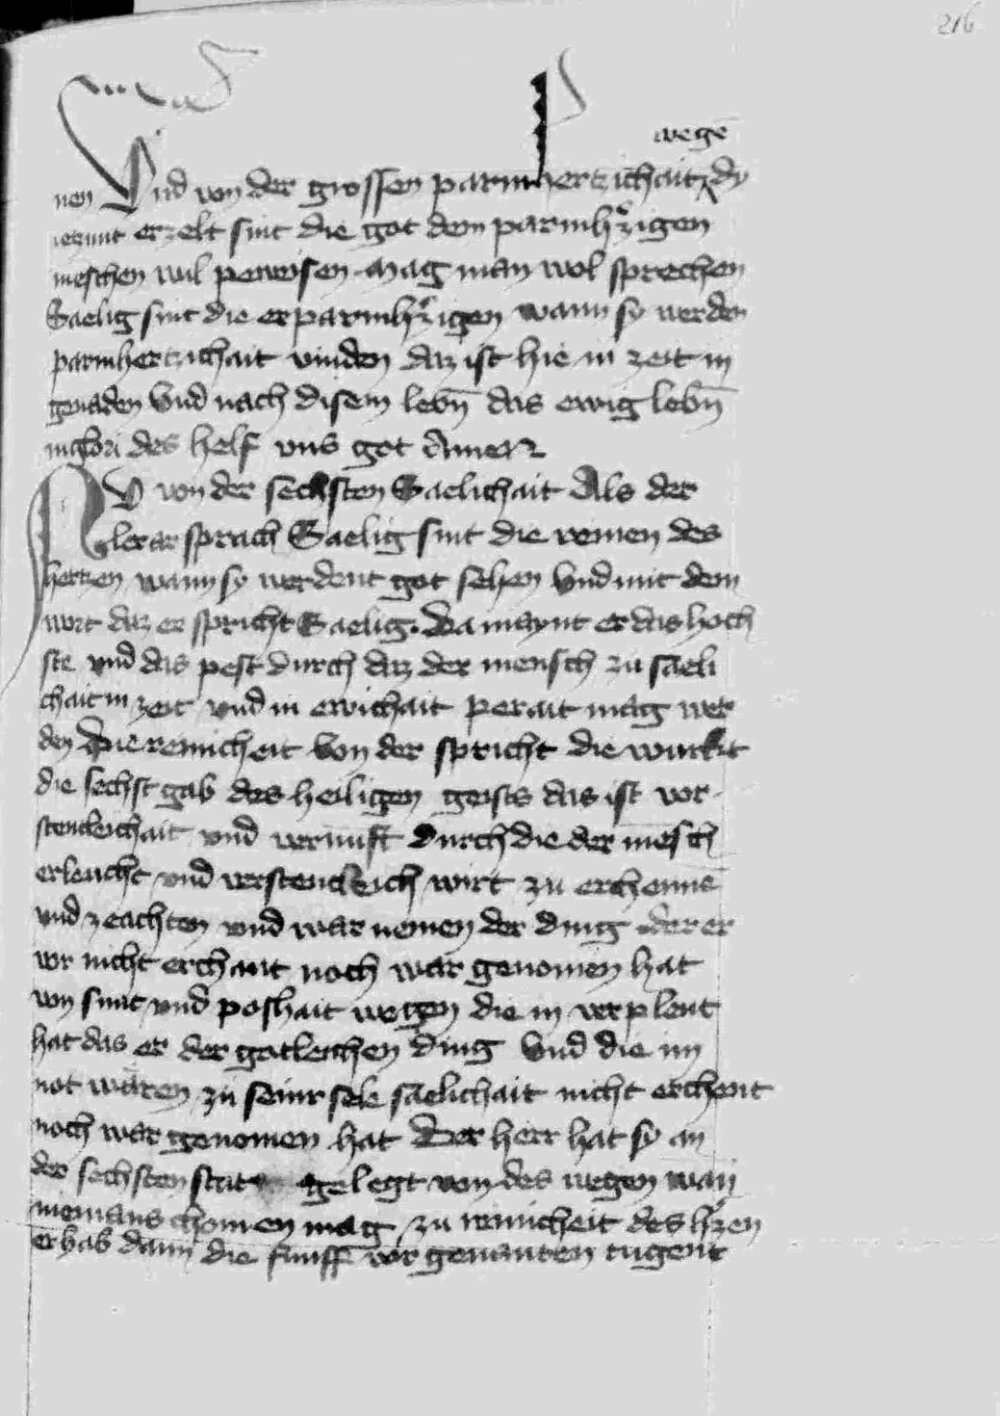 216
wegē
nen Vnd von der grossen parmhertzichait dy
ietzunt erzelt sint die got dem parmhʼzigen
meschen wil peweisen mag man wol sprechen
Saelig sint die erparmhʼzigen wann sy werden
parmhertzichait vinden daz ist hie in zeit in
genaden Vnd nach disem lebn̄ das ewig lebn̄
des helf vns got Amen
NV von der sechsten Saelichait Als der
lerar sprach Saelig sint die reinen des
hertzen wann sy werdent got sehen Vnd mit dem
wort daz er spricht Saelig. Da maynt er das hoch
ste vnd das pest durch daz der mensch zu saeli
chait in zeit vnd in ewichait perait mag wer
den Die reinicheit von der spricht die wurkt
die sechst gab des heiligen geists das ist vor
stentleichait vnd vernuft durch die der mēsch
erleucht vnd verstentleich wirt zu erchennē
vnd zeachten vnd war nemen der ding der er
vor nicht erchant noch war genomen hat
von sunt vnd poshait wegen die in verplent
hat das er der gotleichen ding Vnd die im
not wären zu seinr sele saelichait nicht erchent
noch war genomen hat Der herr hat sy an
der sechsten stat gelegt von des wegen wan
niemans chomen mag zu reinicheit des hʼzen
er hab dann die funff vor genanten tugent